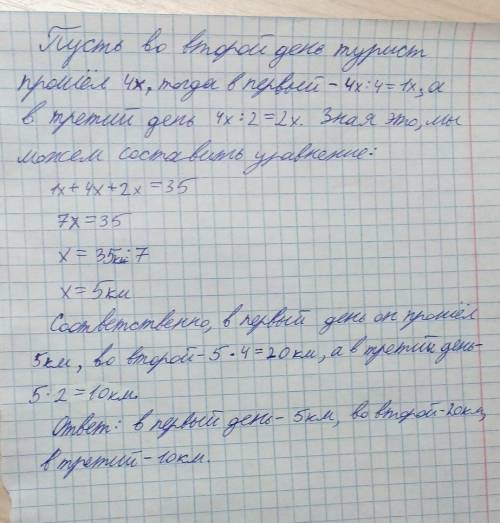 Пусть во второй день турист
прошёл 4х, тогда в первый - 4х:4=1х, а
в третий день 4х:2=2х. Зная это, мы
можем составить уравнение:
1х+4х+2х=35
7х=35
х = 35км:7
х = 5км
Соответственно, в первый день он прошёл
5км, во второй - 5·4=20км, а в третий день-
5·2=10км.
Ответ: в первый день - 5км, во второй-20км,
в третий - 10км.